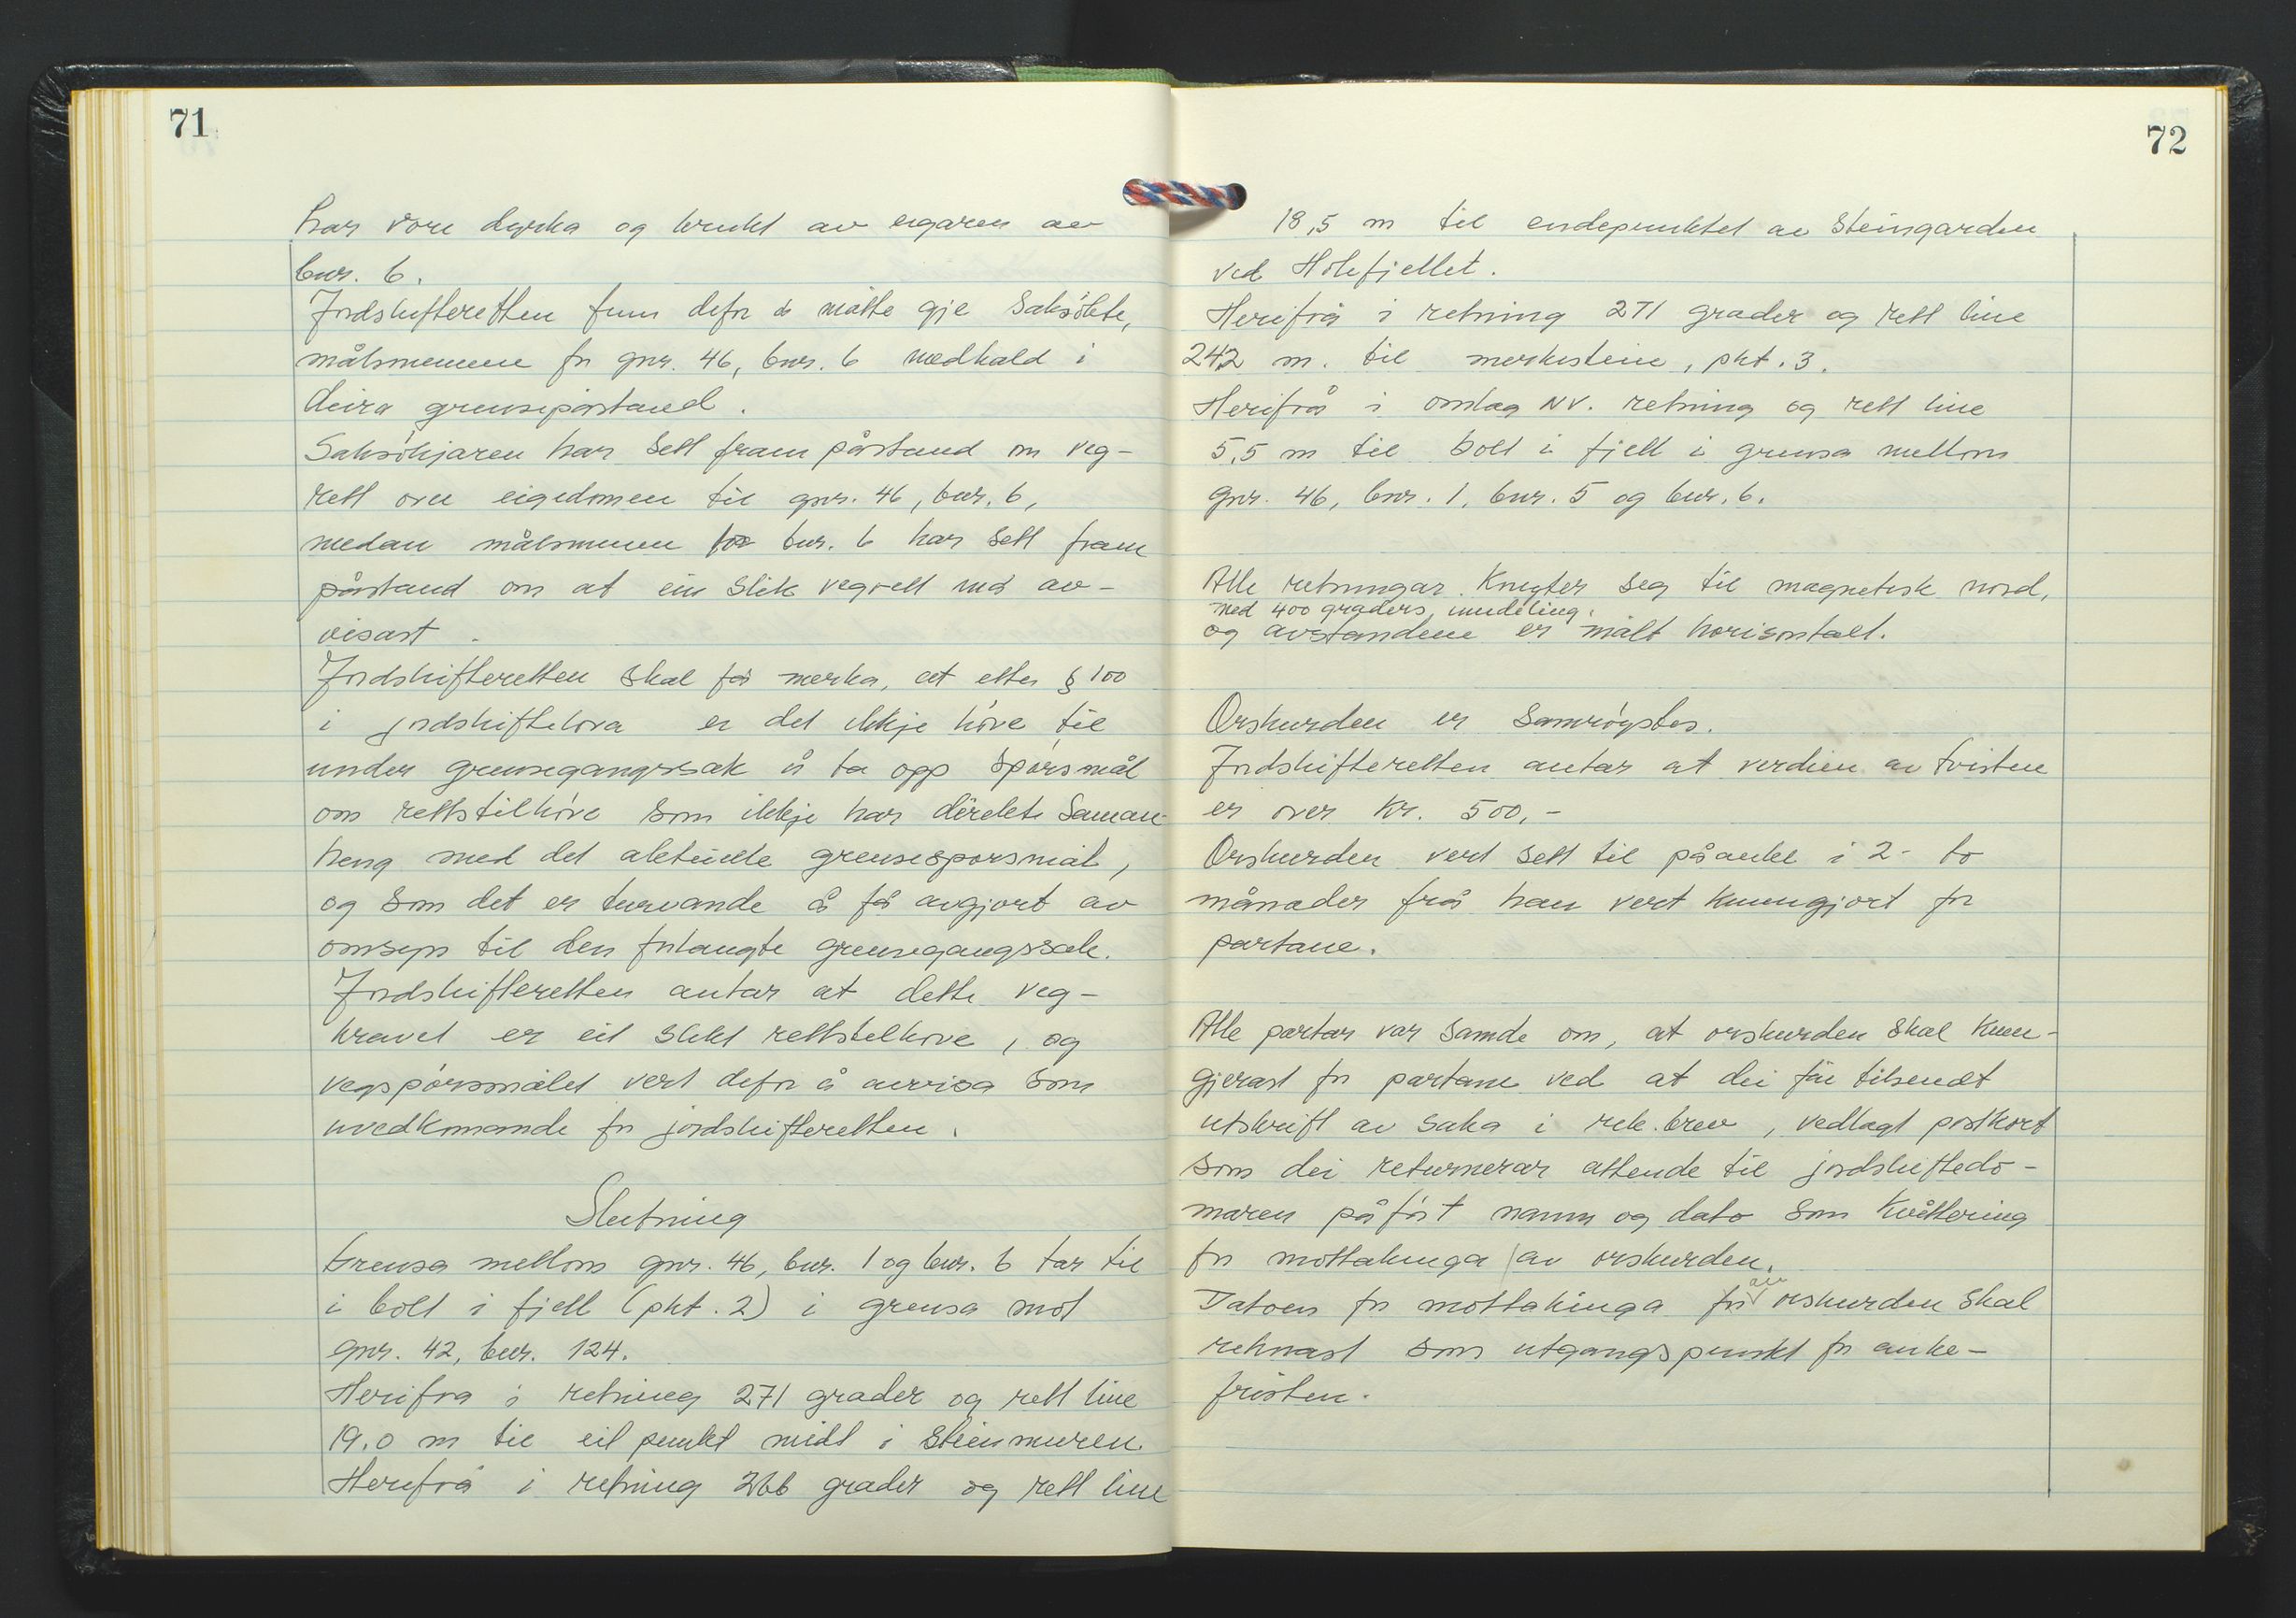 71
har vore dyrka og brukt av eigaren av
bnr. 6.
Jordskifteretten finn defor å måtte gje saksøkte,
målsmennene for gnr. 46, bnr. 6 medhald i
deira grensepåstand.
Saksøkjaren har sett fram påstand om veg-
rett over eigedomen til gnr. 46, bnr. 6,
medan målsmenene for bnr. 6 har sett fram
påstand om at ein slik vegrett må av-
visast.
Jordskifteretten skal få merka, at etter § 100
i jordskiftelova er det ikkje høve til
under grensegangssak å ta opp spørsmål
om rettstilhøve som ikkje har direkte saman-
heng med det aktuelle grensespørsmål,
og som det er turvande å få avgjort av
omsyn til den forlangte grensegangssak.
Jordskifteretten antar at dette veg-
kravet er eit slikt rettstilhøve, og
vegspørsmålet vert defor å avvisa som
uvedkomande for jordskifteretten.
Slutning
Grensa mellom gnr. 46, bnr. 1 og bnr. 6 tar til
i bolt i fjell (pkt. 2) i grensa mot
gnr. 42, bnr. 124.
Herifra i retning 271 grader og rett line
19,0 m til eit punkt midt i steinmuren.
Herifrå i retning 266 grader og rett line
72
18,5 m til endepunktet av steingarden
ved Holefjellet.
Herifrå i retning 271 grader og rett line
242 m. til merkestein, pkt. 3.
Herifrå i omlag NV. retning og rett line
5,5 m til bolt i fjell i grensa mellom
gnr. 46, bnr. 1, bnr. 5 og bnr. 6.
Alle retningar knyter seg til magnetisk nord,
med 400 graders inndeling.
og avstandene er målt horisontalt.
Orskurden er samrøystes.
Jordskifteretten antar at verdien av tvisten
er over kr. 500,-
Orskurden vert sett til påanke i 2- to
månader frå han vert kunngjort for
partane.
Alle partar var samde om, at orskurden skal kunn-
gjerast for partane ved at dei får tilsendt
utskrift av saka i rek. brev, vedlagt postkort
som dei returnerar attende til jordskiftedo-
maren påført namn og dato som kvittering
for mottakinga av orskurden.
Datoen for mottakinga for av orskurden skal
reknast som utgangspunkt for anke-
fristen.